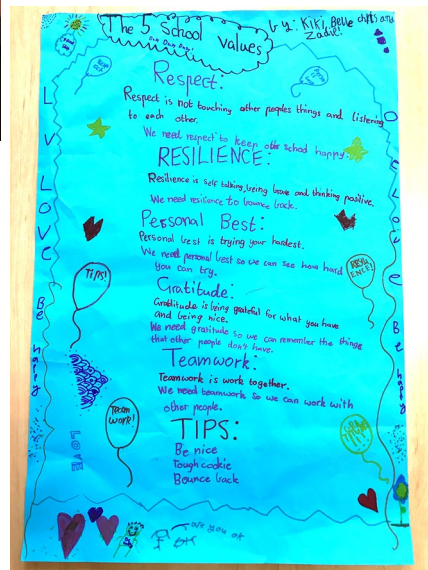 The 5 School Values
Dun Dun Dun!
by: KIKI, Belle
and
Zadie!
Respect:
Respect is not touching other peoples things and listening
to each other.
We need respect to keep our school happy.
RESILIENCE:
Resilience is self talking, being brave and thinking positive.
We need resilience to bounce back.
Personal Best:
Personal best is trying your hardest.
We need personal best so we can see how hard
you can try.
Gratitude:
Gratitude is being grateful for what you have
and being nice.
We need gratitude so we can remember the things
that other people don't have.
Teamwork:
Teamwork is work together.
We need teamwork so we can work with
other people.
TIPS:
Be nice
Tough cookie
Bounce back
LOVE
Be
happy
Tips!
Team
work!
LOVE
Love
Be
happy
RESILI
ENCE!